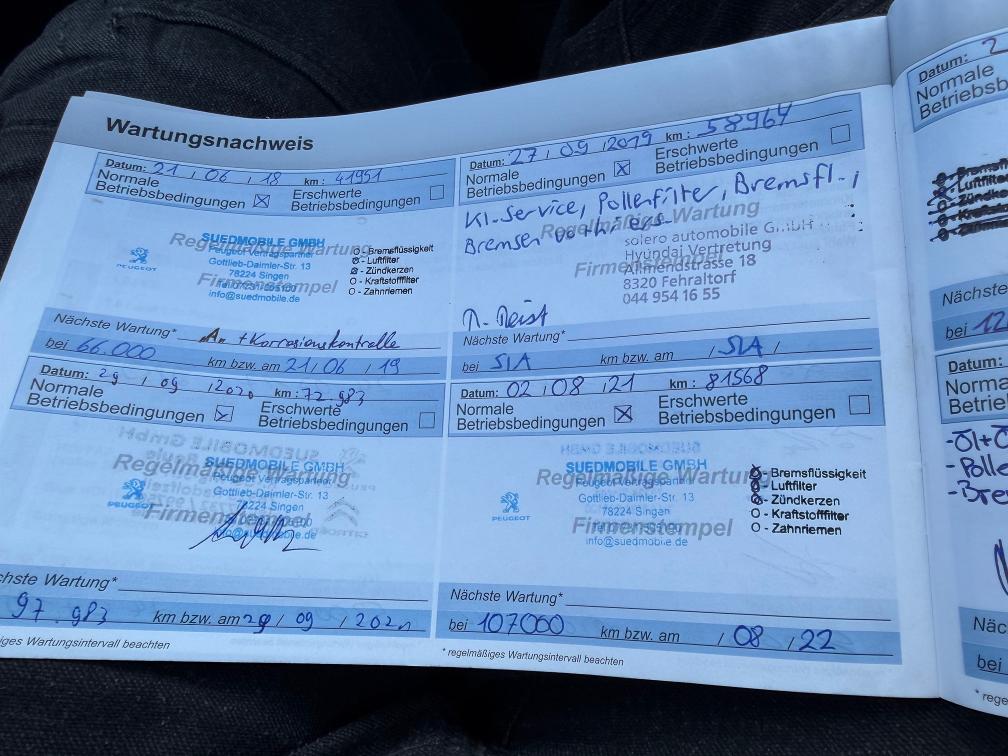 Wartungsnachweis
Datum: 21 / 06 / 18 km: 41951
Normale Betriebsbedingungen ☒ Erschwerte Betriebsbedingungen ☐
Regelmäßige Wartung
SUEDMOBILE GMBH
Peugeot Vertragspartner
Gottlieb-Daimler-Str. 13
78224 Singen
info@suedmobile.de
PEUGEOT
Firmenstempel
O - Bremsflüssigkeit
O - Luftfilter
O - Zündkerzen
O - Kraftstofffilter
O - Zahnriemen
Nächste Wartung* + Korrosionskontrolle
bei 66.000 km bzw. am 21 / 06 / 19
Datum: 27 / 09 / 2019 km: 58964
Normale Betriebsbedingungen ☒ Erschwerte Betriebsbedingungen ☐
Kl. Service, Pollenfilter, Bremsfl.,
Bremsen
Regelmäßige Wartung
solero automobile GmbH
Hyundai Vertretung
Allmendstrasse 18
8320 Fehraltorf
044 954 16 55
Firmenstempel
Nächste Wartung*
bei SIA km bzw. am / SIA /
Datum: 29 / 09 / 2020 km: 72.983
Normale Betriebsbedingungen ☒ Erschwerte Betriebsbedingungen ☐
Regelmäßige Wartung
SUEDMOBILE GMBH
Peugeot Vertragspartner
Gottlieb-Daimler-Str. 13
78224 Singen
info@suedmobile.de
PEUGEOT
Firmenstempel
ächste Wartung*
97.983 km bzw. am 29 / 09 /
iges Wartungsintervall beachten
Datum: 02 / 08 / 21 km: 81568
Normale Betriebsbedingungen ☒ Erschwerte Betriebsbedingungen ☐
Regelmäßige Wartung
SUEDMOBILE GMBH
Peugeot Vertragspartner
Gottlieb-Daimler-Str. 13
78224 Singen
info@suedmobile.de
PEUGEOT
Firmenstempel
O - Bremsflüssigkeit
O - Luftfilter
O - Zündkerzen
O - Kraftstofffilter
O - Zahnriemen
Nächste Wartung*
bei 107000 km bzw. am / 08 / 22
* regelmäßiges Wartungsintervall beachten
Datum: 2
Normale
Betriebsb
Bremsfl
Luftfilter
Zünd
Krafts
Nächste
bei 12
Datum:
Norma
Betrie
- Öl+
- Polle
- Bre
Näc
bei
* rege